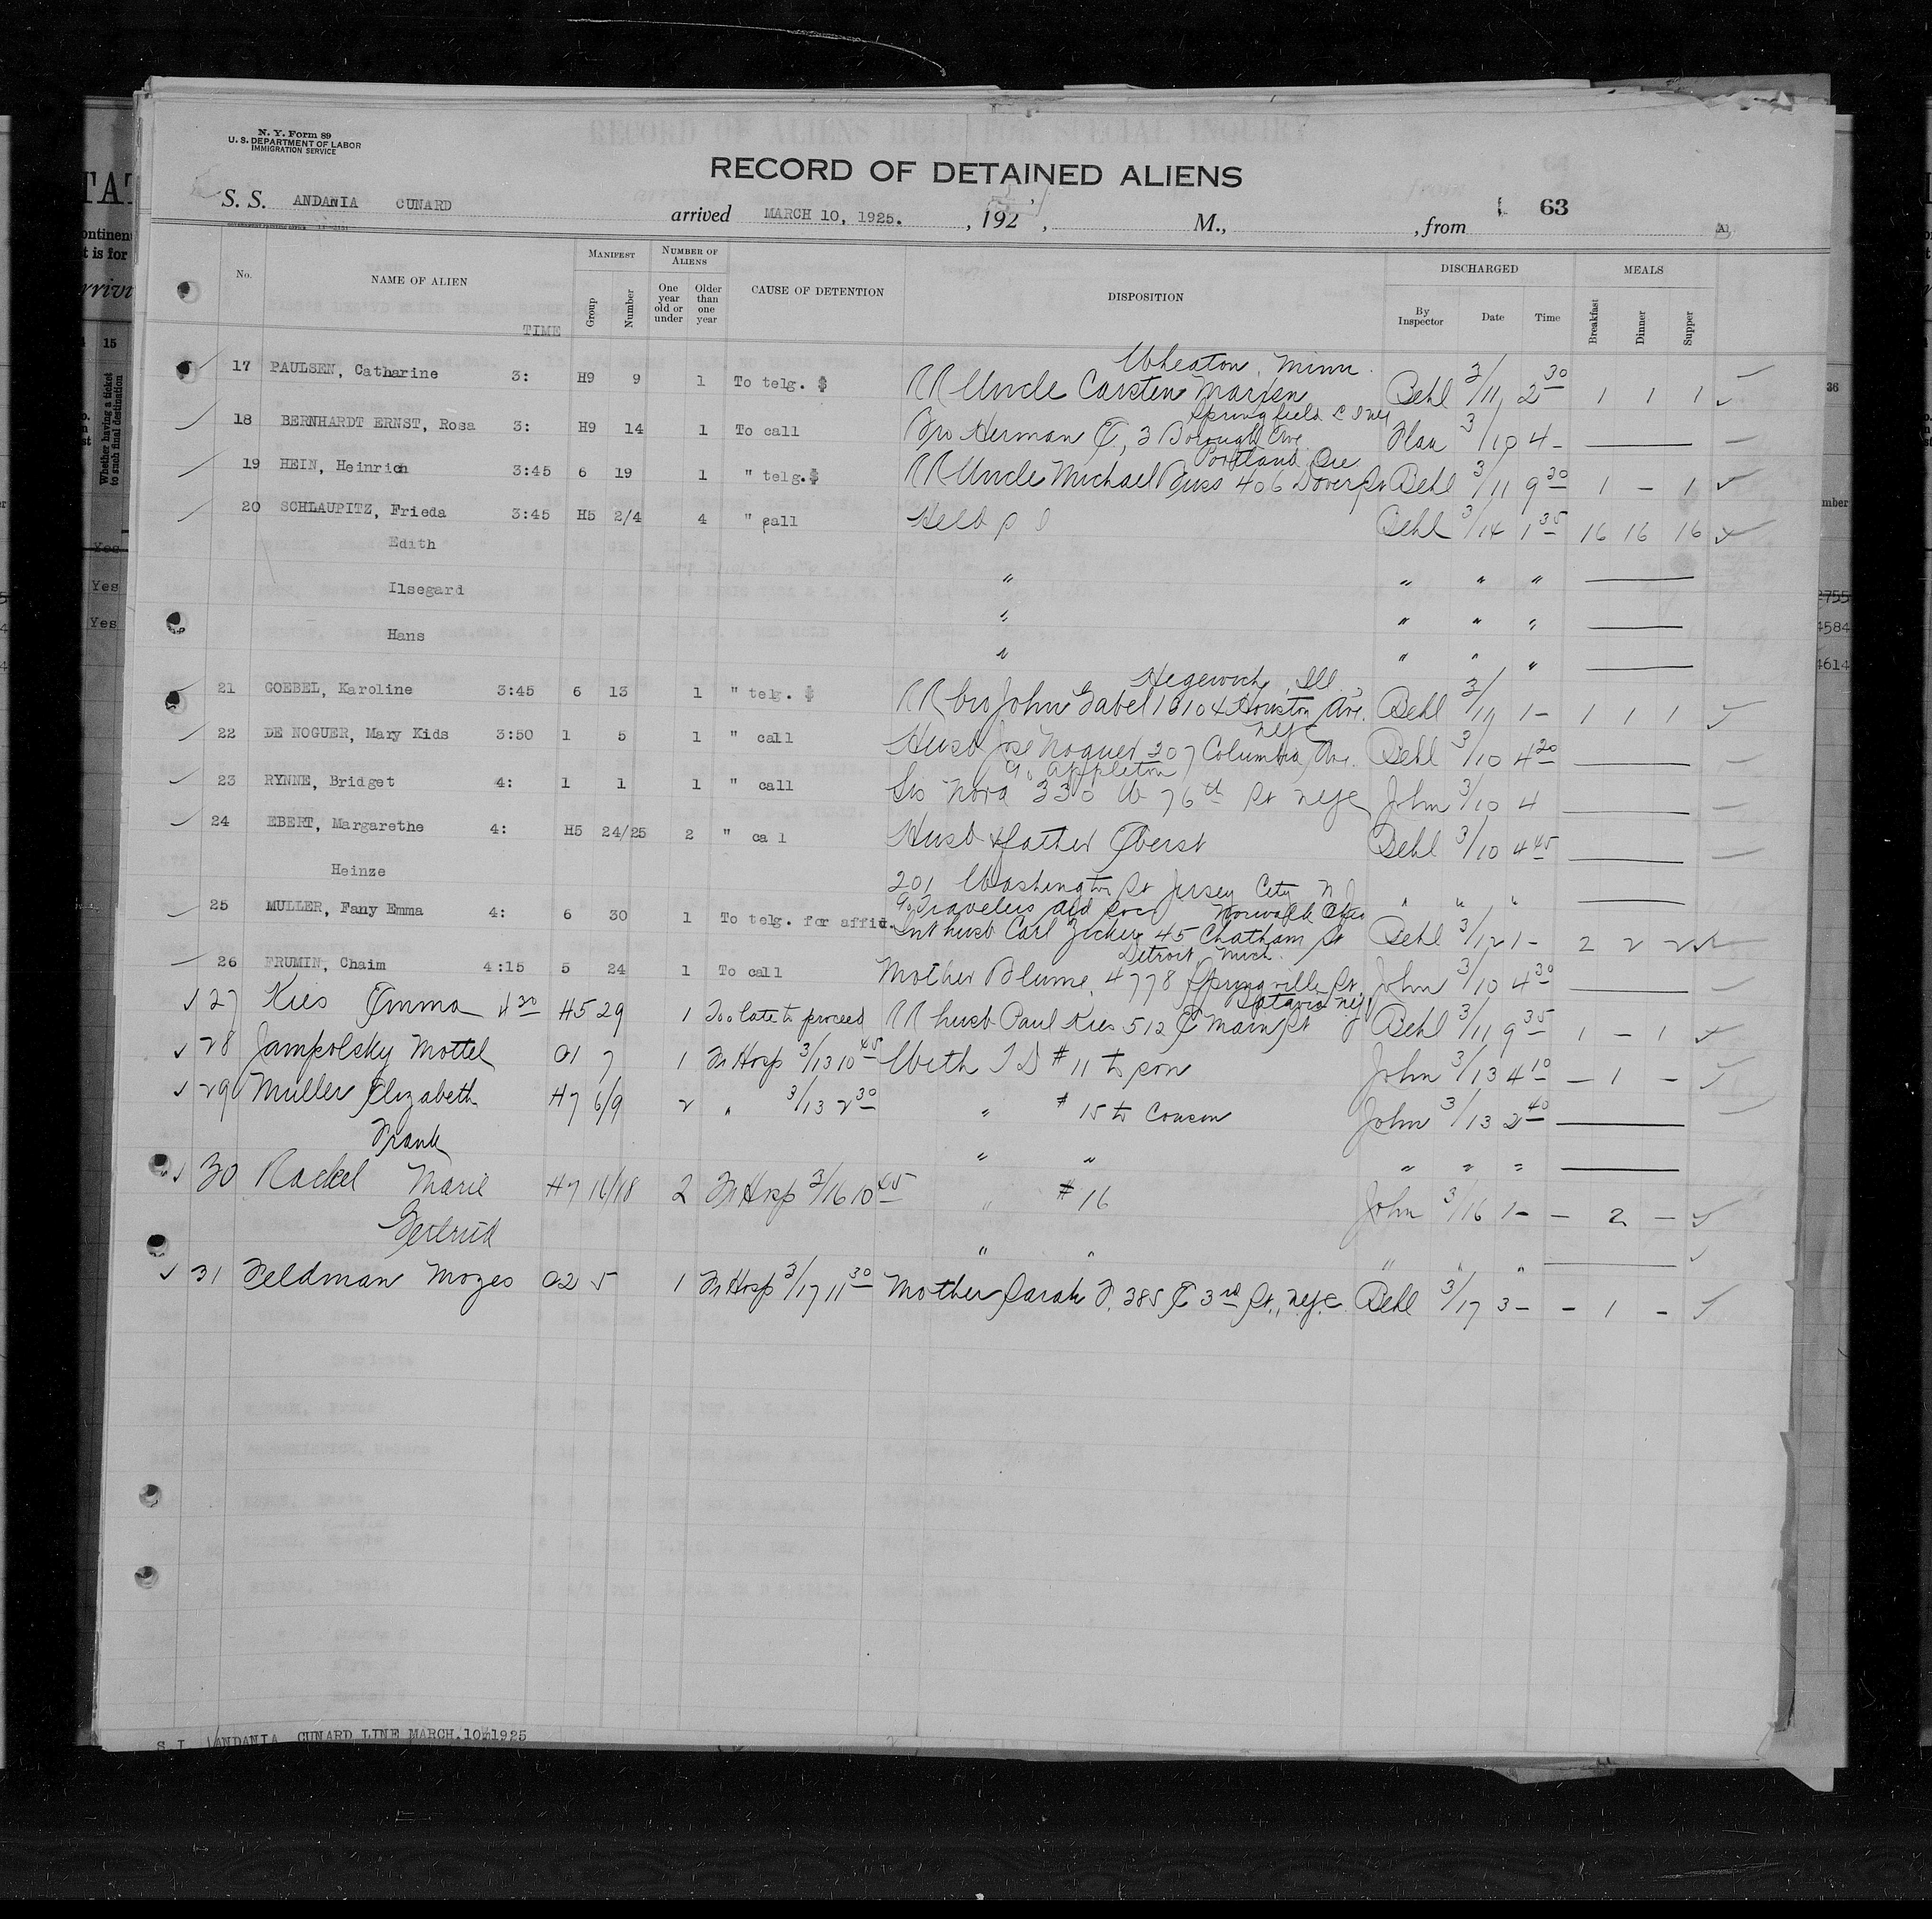 N. Y. Form 89
U. S. DEPARTMENT OF LABOR
IMMIGRATION SERVICE
RECORD OF DETAINED ALIENS
S. S. ANDANIA CUNARD arrived MARCH 10, 1925. , 192 , M., , from 63
No. NAME OF ALIEN TIME MANIFEST Group Number NUMBER OF ALIENS One year old or under Older than one year CAUSE OF DETENTION DISPOSITION DISCHARGED By Inspector Date Time MEALS Breakfast Dinner Supper
Wheaton, Minn.
17 PAULSEN, Catharine 3: H9 9 1 To telg. RR Uncle Carsten Marjen Behl 3/11 2 30 1 1 1
Springfield L I NY
18 BERNHARDT ERNST, Rosa 3: H9 14 1 To call Bro Herman E, 3 Borough Ave Haa 3/10 4 -
Portland Ore
19 HEIN, Heinrich 3:45 6 19 1 " telg. RR Uncle Michael Buss 406 Dover St Behl 3/11 9 30 1 - 1
20 SCHLAUPITZ, Frieda 3:45 H5 2/4 4 " call Held S I Behl 3/14 1 35 16 16 16
Edith " " " "
Ilsegard " " " "
Hans " " " "
Hegewich, Ill.
21 GOEBEL, Karoline 3:45 6 13 1 " telg. RR bro John Gabel 13104 Houston Ave. Behl 3/11 1- 1 1 1
NYC
22 DE NOGUER, Mary Kids 3:50 1 5 1 " call Husb Jose Noguer 207 Columbia Ave. Behl 3/10 4 20
c/o Appleton
23 RYNNE, Bridget 4: 1 1 1 " call Sis Nora 330 W 76th St NYC John 3/10 4
24 EBERT, Margarethe 4: H5 24/25 2 " ca l Husb & father Ebert Behl 3/10 4 45
Heinze 201 Washington St Jersey City N J " " "
c/o Travelers Aid Soc Norwalk Ohio
25 MULLER, Fany Emma 4: 6 30 1 To telg. for affid. Int husb Carl Zucker 45 Chatham St Behl 3/12 1- 2 2 2
Detroit Mich.
26 FRUMIN, Chaim 4:15 5 24 1 To call Mother Blume, 4778 Springville St. John 3/10 4 30
Batavia NY
27 Kies Emma 4 30 H5 29 1 Too late to proceed RR husb Paul Kies 512 E Main St Behl 3/11 9 35 1 - 1
28 Jampolsky Mottel 01 7 1 In Hosp 3/13 10 45 With T D # 11 to son John 3/13 4 10 - 1 -
29 Muller Elizabeth H7 6/9 2 " 3/13 2 30 " # 15 to Cousin John 3/13 2 40
Frank " " " " "
30 Rackel Marie H7 16/18 2 In Hosp 3/16 10 45 " # 16 John 3/16 1- - 2 -
Gertrud " " " " "
31 Feldman Mozes 02 5 1 In Hosp 3/17 11 30 Mother Sarah F. 385 E 3rd St., NYC. Behl 3/17 3- - 1 -
S I ANDANIA CUNARD LINE MARCH.10.1925